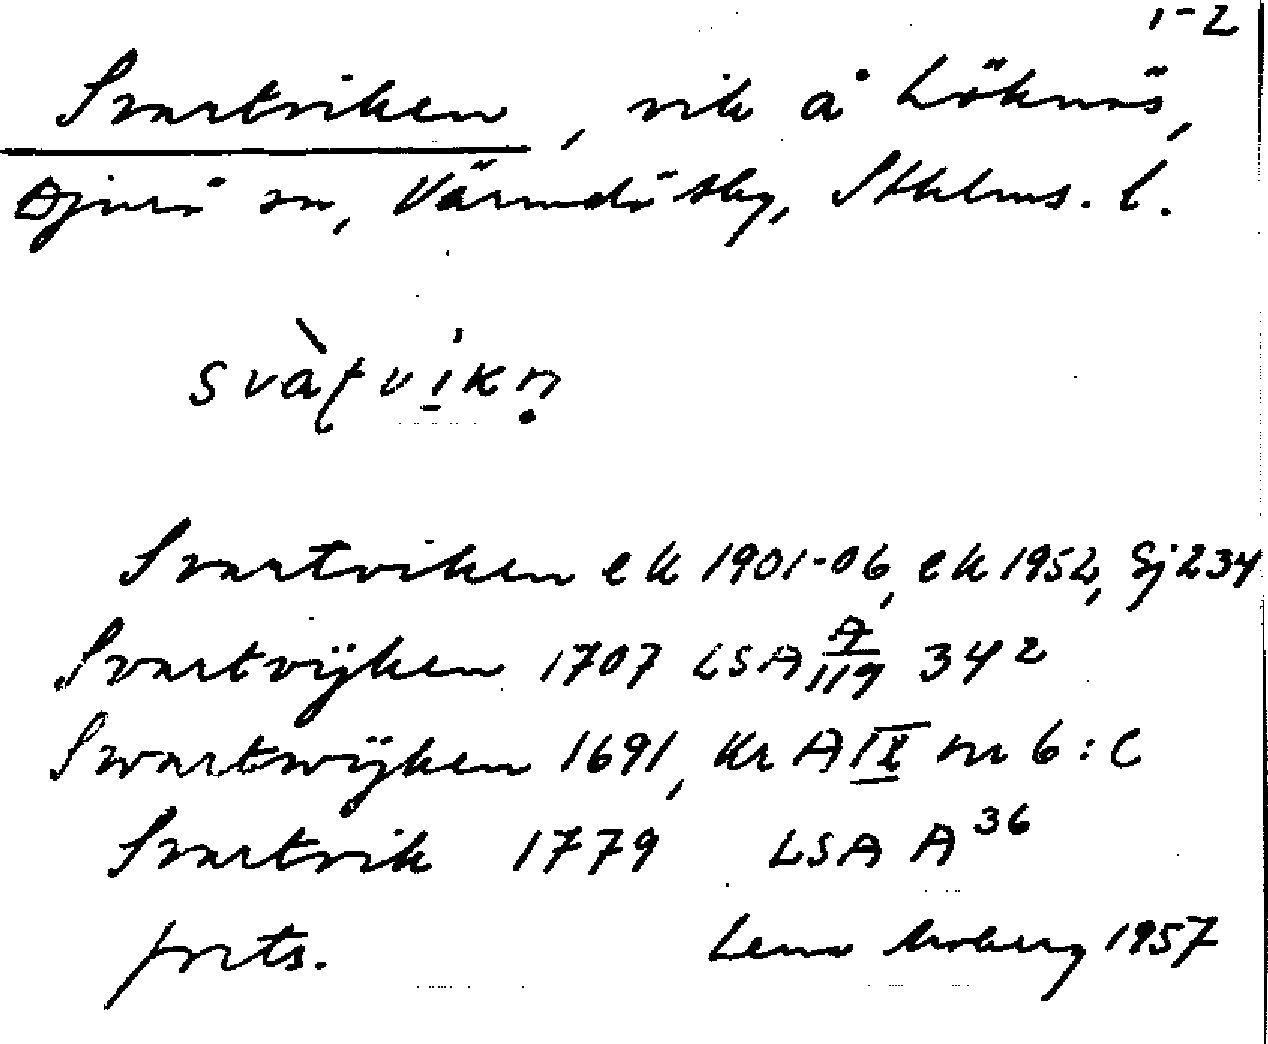 1-2
Svartviken, vik å Löknäs,
Djurö sn, Värmdö sky, Sthlms. l.
svàʈvikn̥
Svartviken ek 1901-06, ek 1952, Sj 234
Svartvijken 1707 LSA A/119 34²
Swartwijken 1691, Kr A IX nr 6:C
Svartvik 1779 LSA A³⁶
forts. Lena Moberg 1957